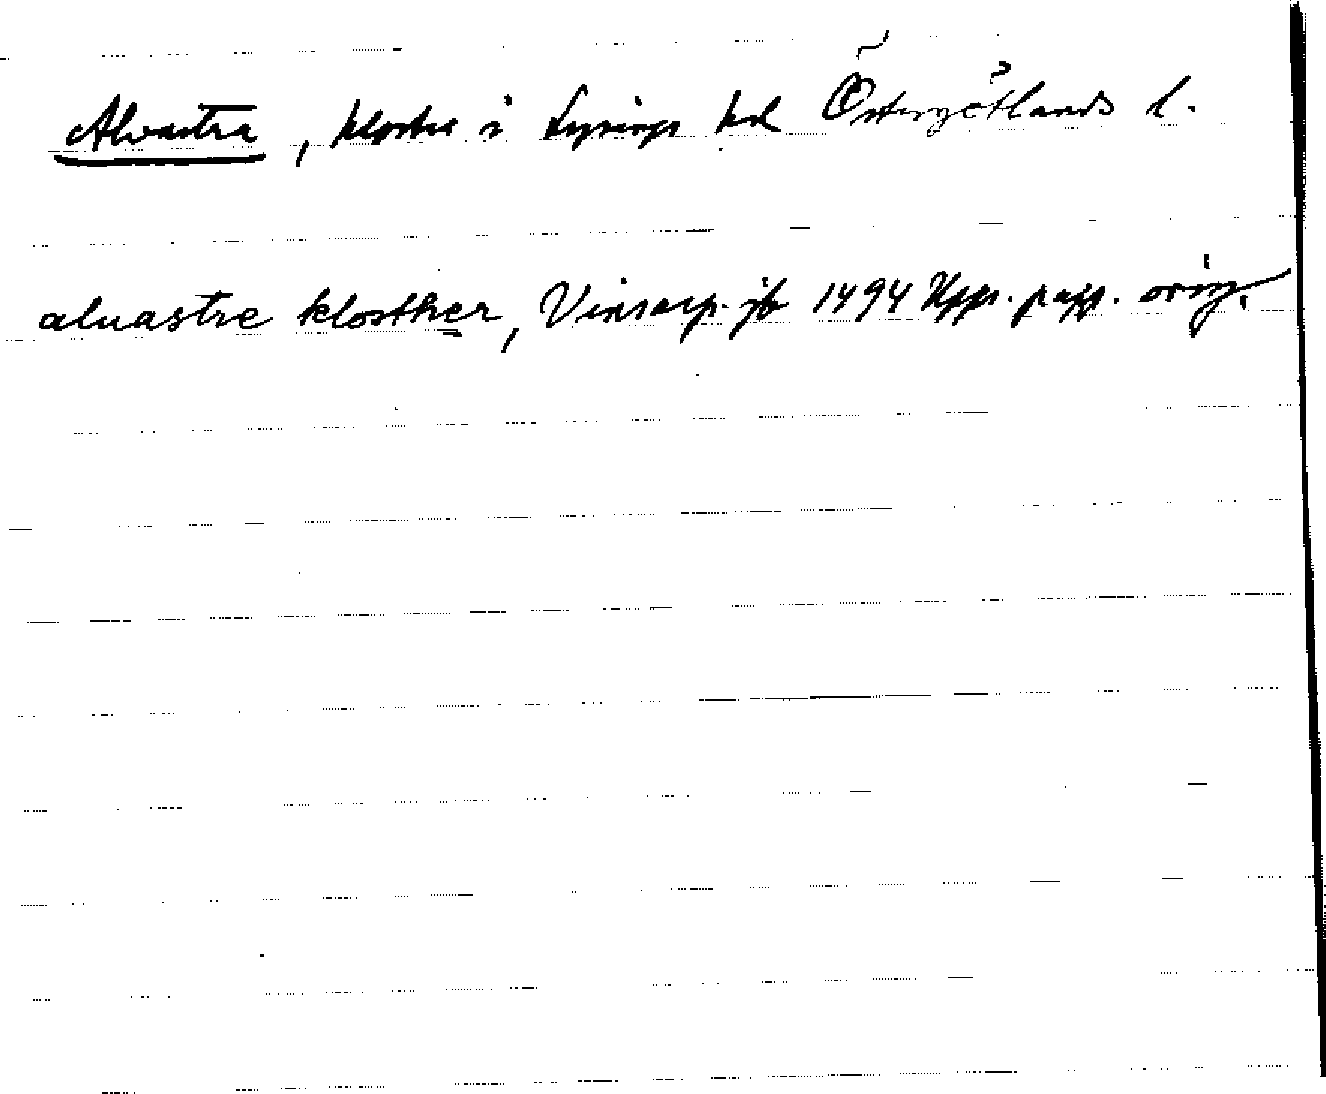 Alvastra, kloster i Lysings hd Östergötlands l.
aluastre klosther, Vinsarp. jb 1494 Upps. papp. orig.